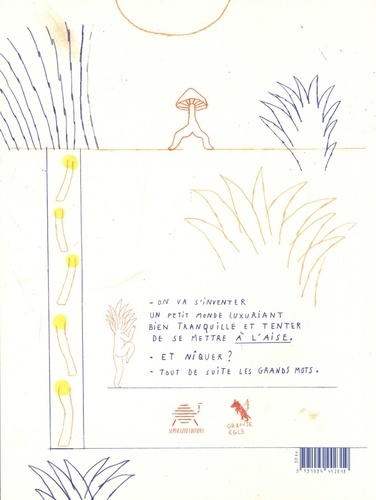 - ON VA S'INVENTER
UN PETIT MONDE LUXURIANT
BIEN TRANQUILLE ET TENTER
DE SE METTRE À L'AISE.
- ET NIQUER ?
- TOUT DE SUITE LES GRANDS MOTS.
SUPER LOTO EDITIONS